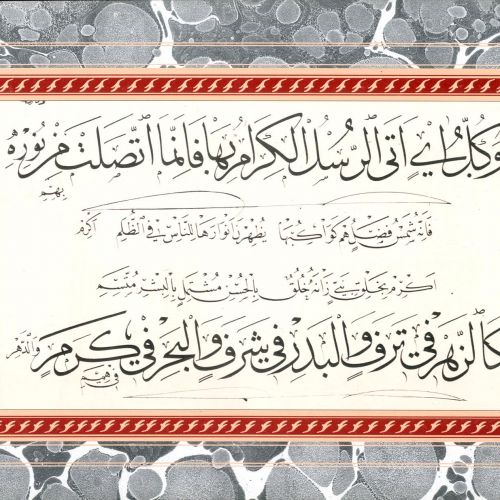 وَكُلُّ اٰيٍ اَتَى الرُّسْلُ الْكِرَامُ بِهَا فَاِنَّمَا اتَّصَلَتْ مِنْ نُورِهِ
بِهِمِ
فَاِنَّهُ شَمْسُ فَضْلٍ هُمْ كَوَاكِبُهَا يُظْهِرْنَ اَنْوَارَهَا لِلنَّاسِ فِي الظُّلَمِ اَكْرِمْ
اَكْرِمْ بِخَلْقِ نَبِيٍّ زَانَهُ خُلُقٌ بِالْحُسْنِ مُشْتَمِلٍ بِالْبِشْرِ مُتَّسِمِ
كَالزَّهْرِ فِي تَرَفٍ وَالْبَدْرِ فِي شَرَفٍ وَالْبَحْرِ فِي كَرَمٍ وَالدَّهْرِ
فِي هِمَمِ